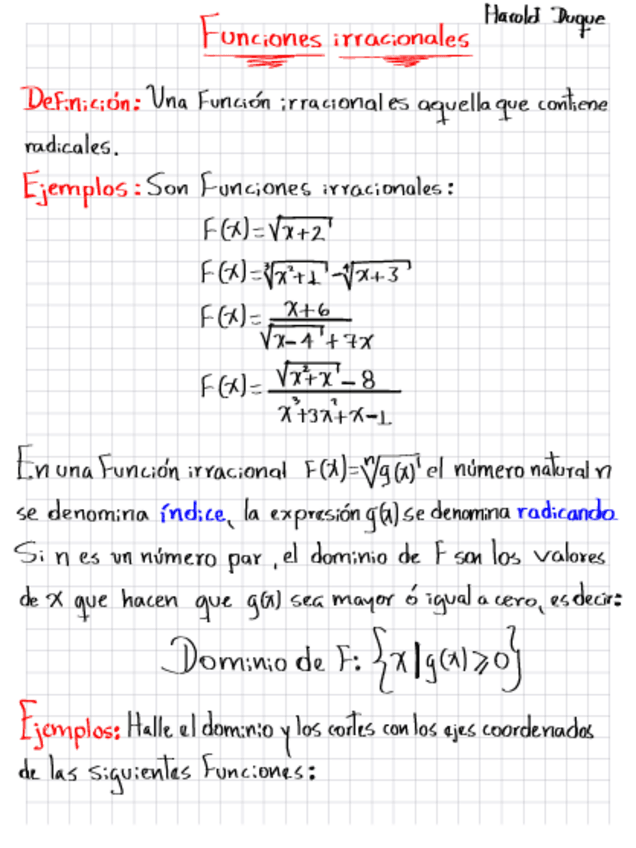 Harold Duque
Funciones irracionales
Definición: Una Función irracional es aquella que contiene
radicales.
Ejemplos: Son Funciones irracionales:
F(x)=√(x+2)
F(x)=∛(x²+1)-∜(x+3)
F(x)=(x+6)/(√(x-4)+7x)
F(x)=(√(x²+x)-8)/(x³+3x²+x-1)
En una Función irracional F(x)=ⁿ√g(x) el número natural n
se denomina índice, la expresión g(x) se denomina radicando
Si n es un número par, el dominio de F son los valores
de x que hacen que g(x) sea mayor ó igual a cero, es decir:
Dominio de F: {x|g(x)⩾0}
Ejemplos: Halle el dominio y los cortes con los ejes coordenados
de las siguientes Funciones: